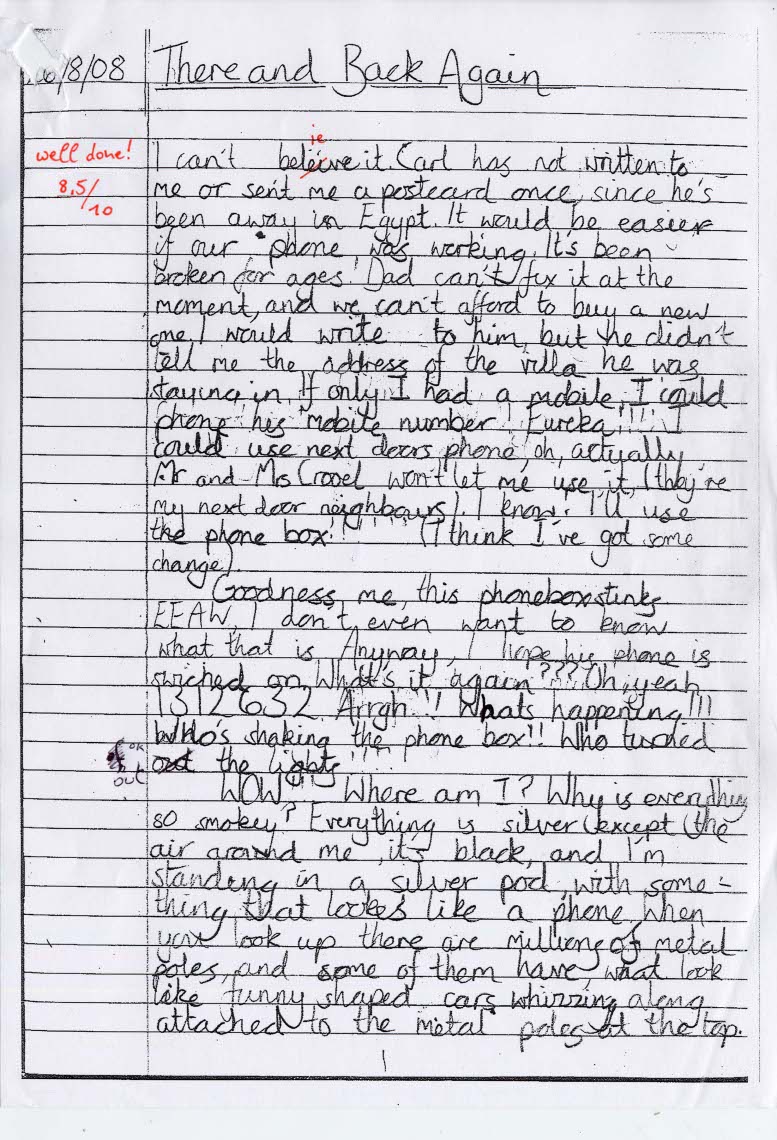 /8/08 There and Back Again
well done!
8,5/10
ie
I can't beleive it. Carl has not written to
me or sent me a postcard once, since he's
been away in Egypt. It would be easier
if our phone was working. It's been
broken for ages! Dad can't fix it at the
moment, and we can't afford to buy a new
one. I would write to him, but he didn't
tell me the address of the villa he was
staying in. If only I had a mobile, I could
phone his mobile number! Eureka!!!! I
could use next doors phone, oh, actually
Mr and Ms won't let me use it, (they're
my next door neighbours). I know. I'll use
the phone box!!'''' (I think I've got some
change).
Goodness me, this phonebox stinks
EEAW, I don't even want to know
what that is Anyway, I hope his phone is
swiched on. What's it again??? Oh, yeah
1312632 Arrgh!! Whats happening!!!
Who's shaking the phone box!! Who turned
out the lights!!!
out
WOW!!! Where am I? Why is everything
so smokey? Everything is silver (except (the
air around me, it's black, and I'm
standing in a silver pod, with some-
thing that lookes like a phone, when
you look up there are millions of metal
poles, and some of them have, what look
like funny shaped cars whirring along
attached to the metal poles at the top.
1